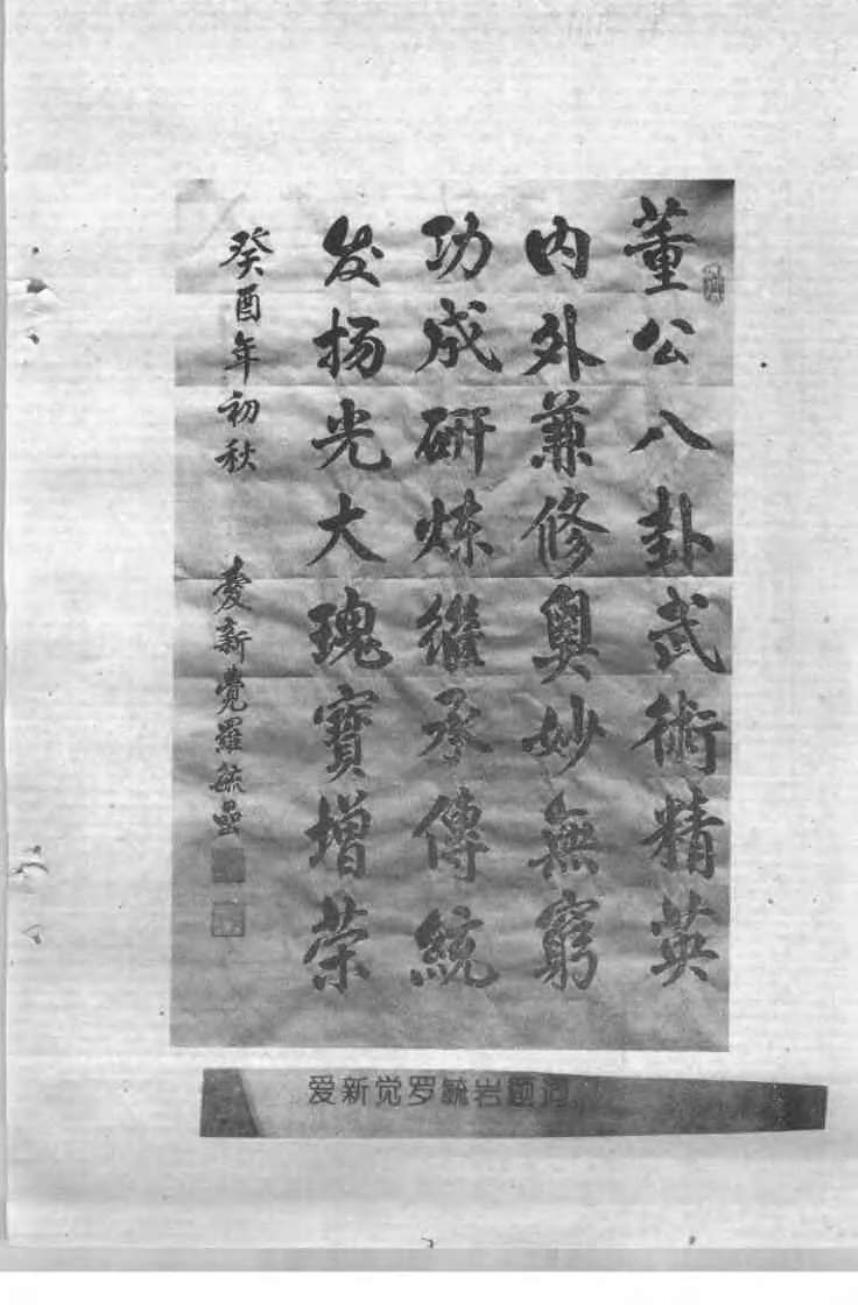 董公八卦武術精英
内外兼修奥妙無窮
功成研炼繼承傳統
发扬光大瑰寶增荣
癸酉年初秋 愛新覺羅毓嵒
爱新觉罗毓岩题词